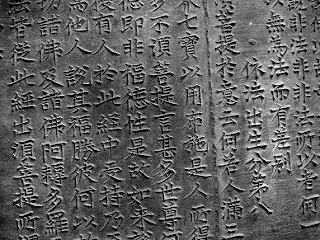 說非法非非法所以者何一
以無為法而有差別
依法出生分第八
須菩提於意云何若人滿三
界七寶以用布施是人所得
多不須菩提言甚多世尊何
德即非福德性是故如來說
復有人於此經中受持乃
為他人說其福勝彼何以故
切諸佛及諸佛阿耨多羅
皆從此經出須菩提所謂